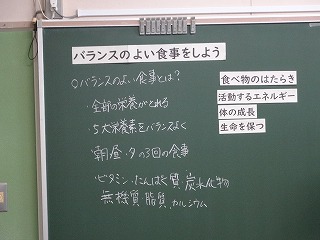 バランスのよい食事をしよう
○バランスのよい食事とは?
・全部の栄養がとれる
・5大栄養素をバランスよく
・朝昼・夕の3回の食事
・ビタミン・たんぱく質,炭水化物
無機質,脂質,カルシウム
食べ物のはたらき
活動するエネルギー
体の成長
生命を保つ